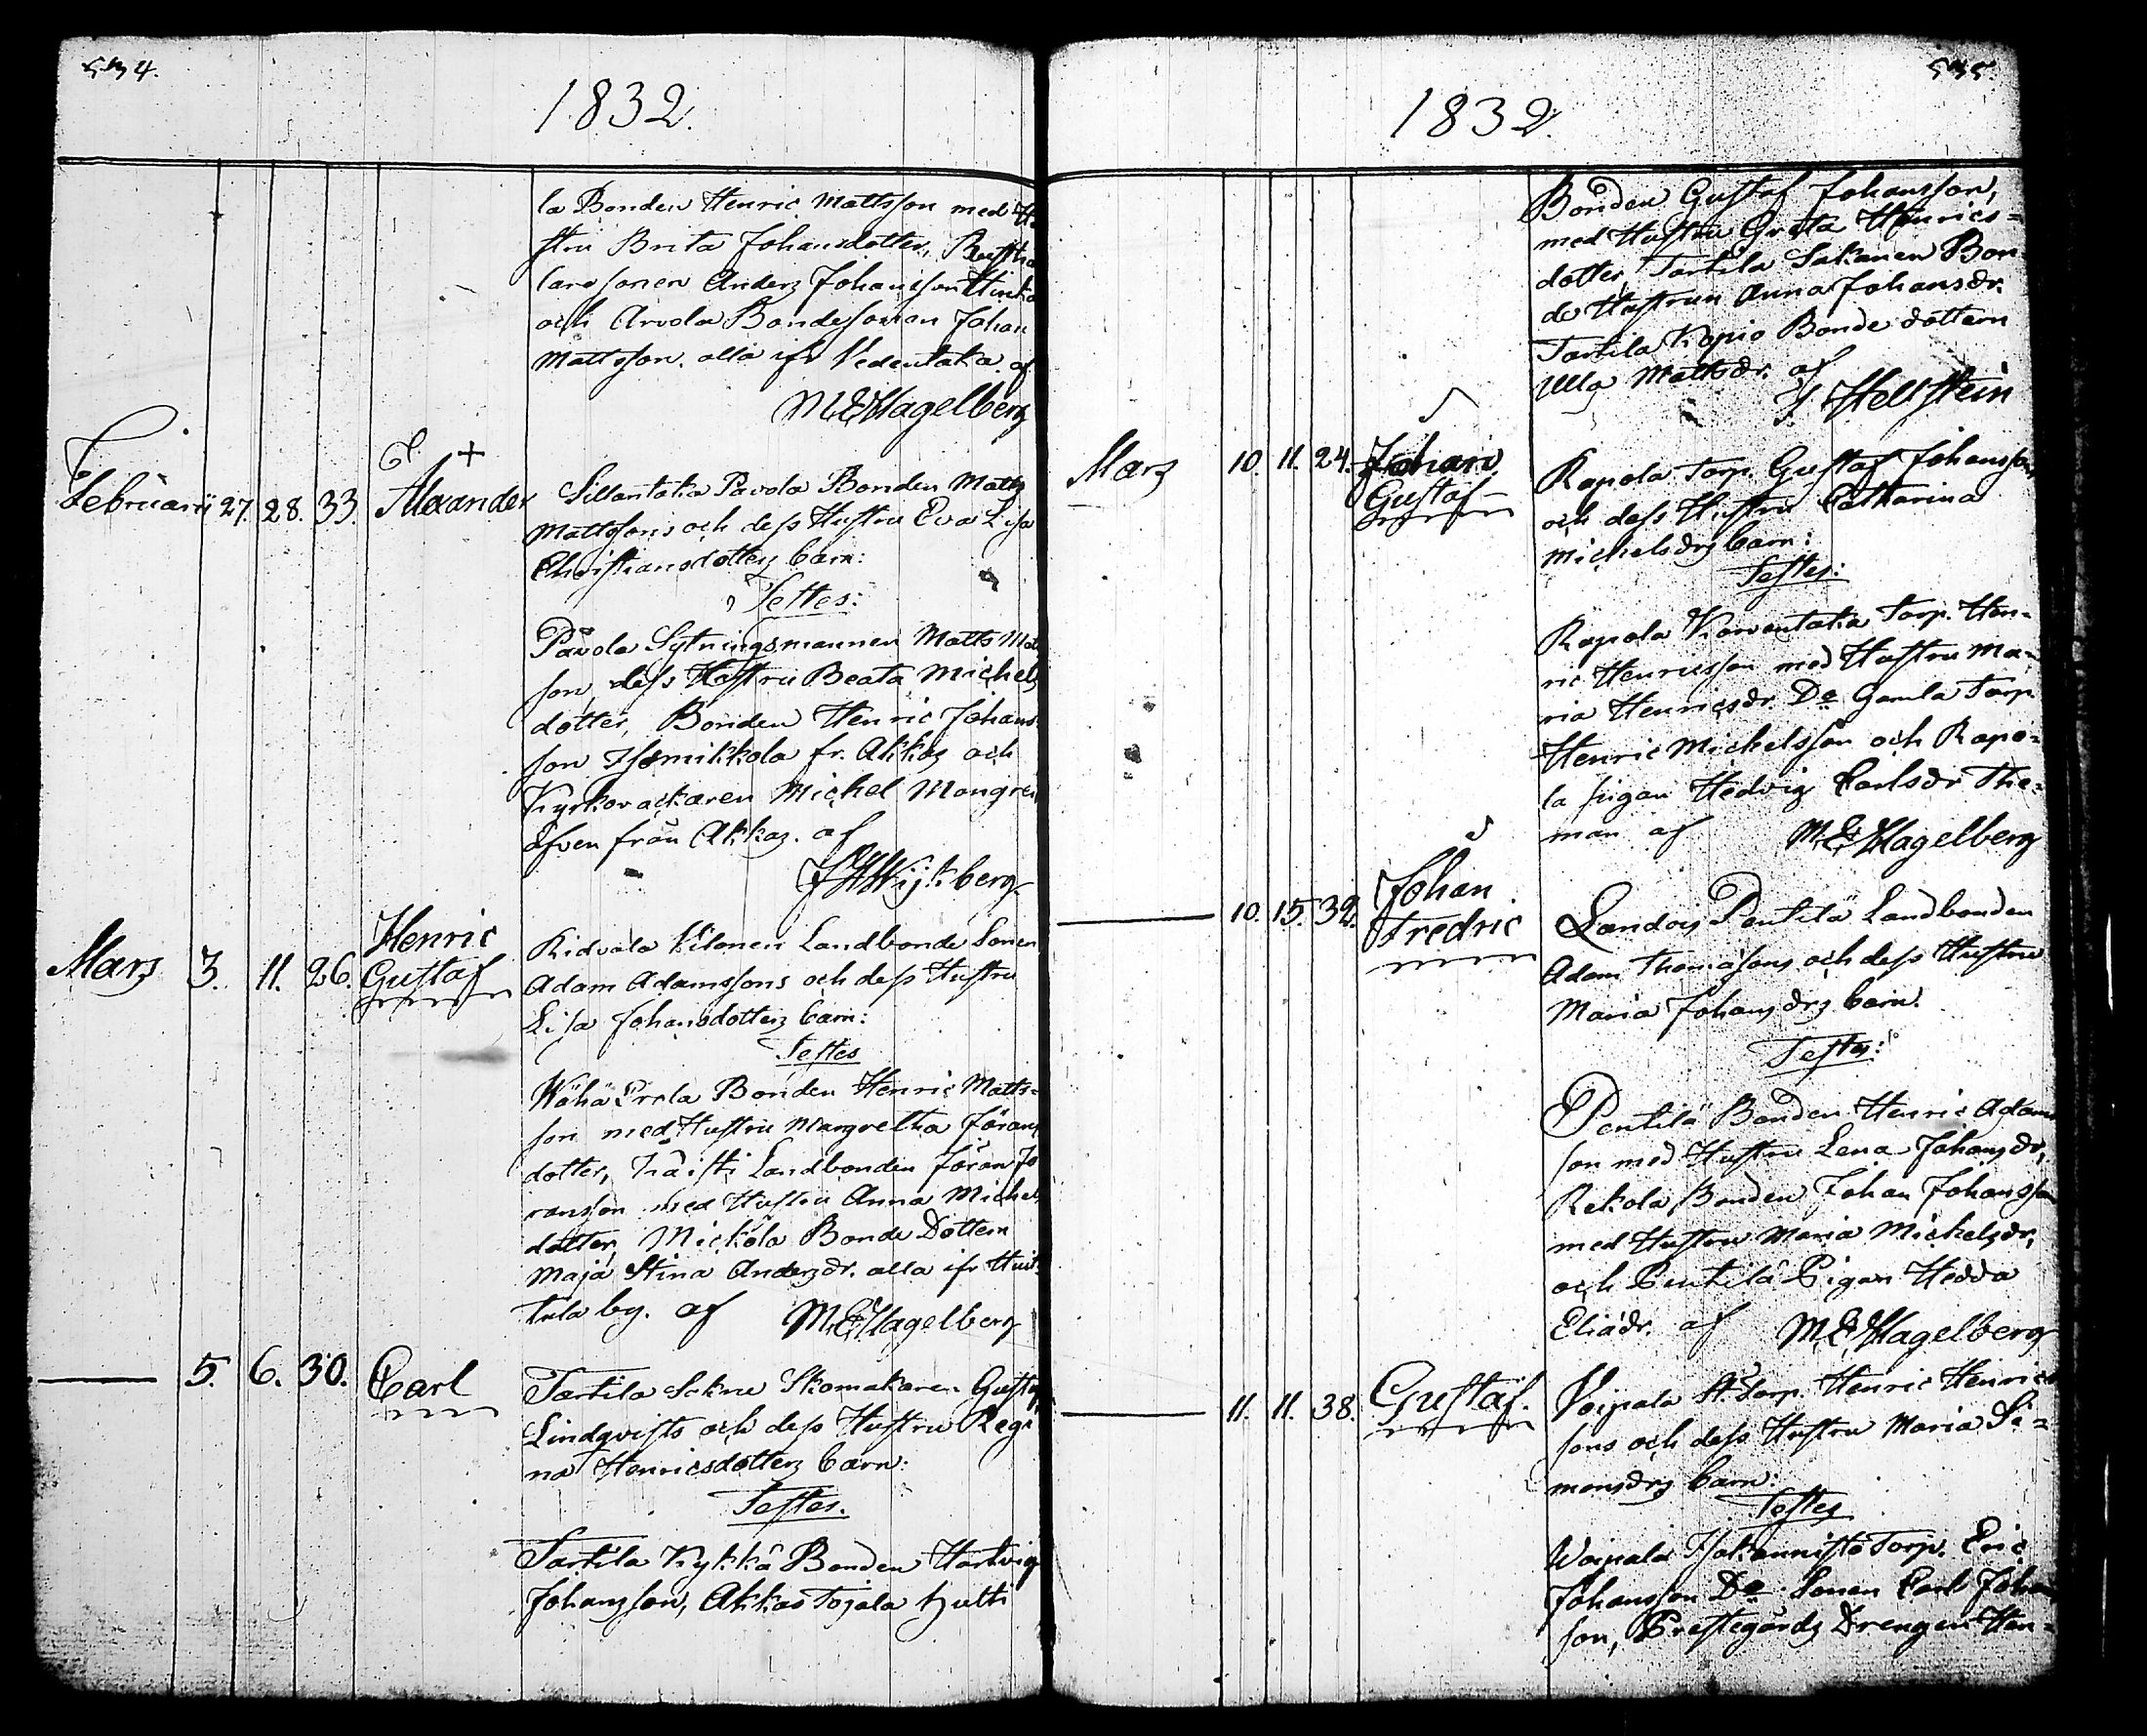 534.
1832.
la Bonden Henric Mattsson med Hu
stru Brita Johansdotter,
laresonen Anders Johansson
och Arvola Bondesonen Johan
Mattsson. alla ifr Vedentaka. af
M.E.Hagelberg
Februarii 27. 28. 33. Alexander
Sillantaka Pavola Bonden Matts
Mattssons och dess Hustru Eva Lisa
Christiansdotters barn:
Testes:
Pavola Sytningsmannen Matts Matts
son, dess Hustru Beata Michels
dotter, Bonden Henric Johans
son Isomikkola fr. Akkas och
Kyrkovacktaren Michel Mangren
äfven från Akkas. af
Wijkberg
Mars 3. 11. 26. Henric
Gustaf
Ridvala Vilonen Landbonde Sonen
Adam Adamssons och dess Hustru
Lisa Johansdotters barn:
Testes
Wähä Erola Bonden Henric Matts=
son med Hustru Margretha Jörans
dotter, Landbonden Jöran Jö
ransson med Hustru Anna Michels
dotter, Mickola Bonde Dottern
Maja Stina Andersdr. alla ifr Huit=
tula by. af M.E.Hagelberg
5. 6. 30. Carl
Tarttila Sokne Skomakaren Gustaf
Lindqvists och dess Hustru Regi
na Henricsdotters barn:
Testes.
Tarttila Kykkä Bonden Hartvig
Johansson, Akkas Tojala
535.
1832.
Bonden Gustaf Johansson,
med Hustru Greta Henrics=
dotter, Tarttila Sakanen Bon
de Hustrun Anna Johansdr.
Tarttila Kopio Bonde dottern
Ulla Mattsdr. af
Hellstein
Mars 10. 11. 24. Johan
Gustaf
Rapola Torp. Gustaf Johanssons
och dess Hustru Catharina
Michelsdrs barn:
Testes:
Rapola Torp. Hen=
ric Henricsson med Hustru Ma=
ria Henricsdr. Do Gamla Torp.
Henric Michelsson och Rapo=
la pigan Hedvig Carlsdr The=
man af M.E.Hagelberg
10. 15. 32. Johan
Fredric
Pentilä Landbonden
Adam Thomassons och dess Hustru
Maria Johansdrs barn.
Testes:
Pentilä Bonden Henric Adams
son med Hustru Lena Johansdr,
Rekola Bonden Johan Johansson
med Hustru Maria Mickelsdr,
och Pentilä Pigan Hedda
Eliædr. af M.E.Hagelberg
11. 11. 38. Gustaf.
Voipala St. Torp. Henric Henrics
sons och dess Hustru Maria Si=
monsdrs barn:
Testes
Woipala Torp. Eric
Johansson Do Sonen Carl Johans
son, Prestegårds Drengen Hen=